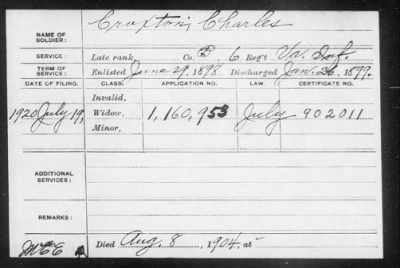 NAME OF SOLDIER: Croxton, Charles
SERVICE: Late rank, Co. B, 6 Reg't Va. Inf.
TERM OF SERVICE: Enlisted June 29, 1898 Discharged Jan. 26, 1899.
DATE OF FILING. CLASS. APPLICATION NO. LAW. CERTIFICATE NO.
Invalid,
1920 July 19, Widow, 1,160,953 July 902011
Minor,
ADDITIONAL SERVICES:
REMARKS:
Died Aug. 8, 1904, at